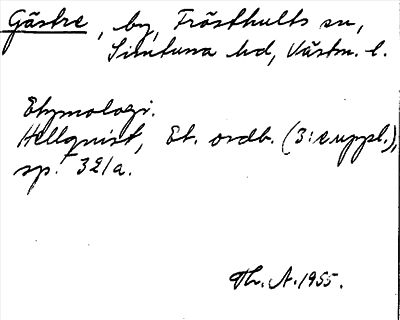 Gästre, by, Frösthults sn,
Simtuna hd, Västm. l.
Etymologi.
Hellquist, Et. ordb. (3:e uppl.),
sp. 321a.
Th. A. 1955.